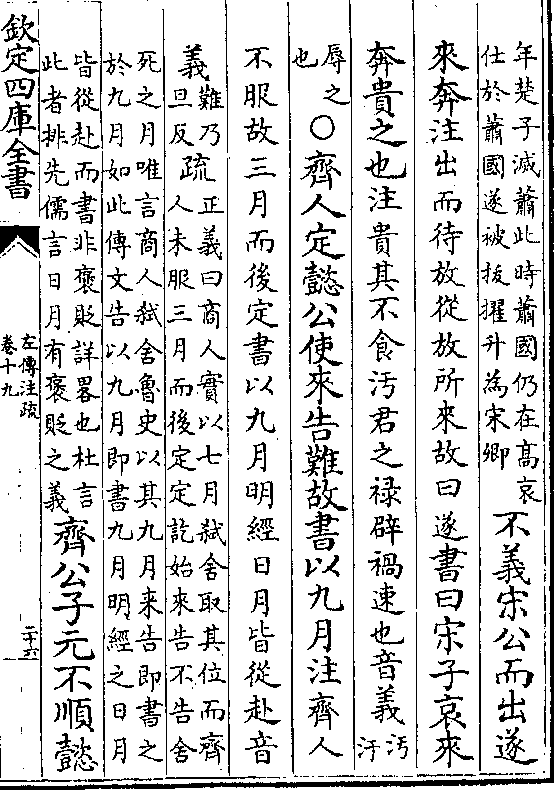 年楚子滅蕭此時蕭國仍在高哀
仕於蕭國遂被拔擢升為宋卿
不義宋公而出遂
來奔注出而待放從放所來故曰遂書曰宋子哀來
奔貴之也注貴其不食汚君之禄辟禍速也音義
汚
汙
辱之
也
○齊人定懿公使來告難故書以九月注齊人
不服故三月而後定書以九月明經日月皆從赴音
義
難乃
旦反
疏
正義曰商人實以七月弑舍取其位而齊
人未服三月而後定定訖始來告不告舍
死之月唯言商人弑舍魯史以其九月来告即書之
於九月如此傳文告以九月即書九月明經之日月
皆從赴而書非褒貶詳畧也杜言
此者排先儒言日月有褒貶之義
齊公子元不順懿
欽定四庫全書
左傳注疏
卷十九
二十六